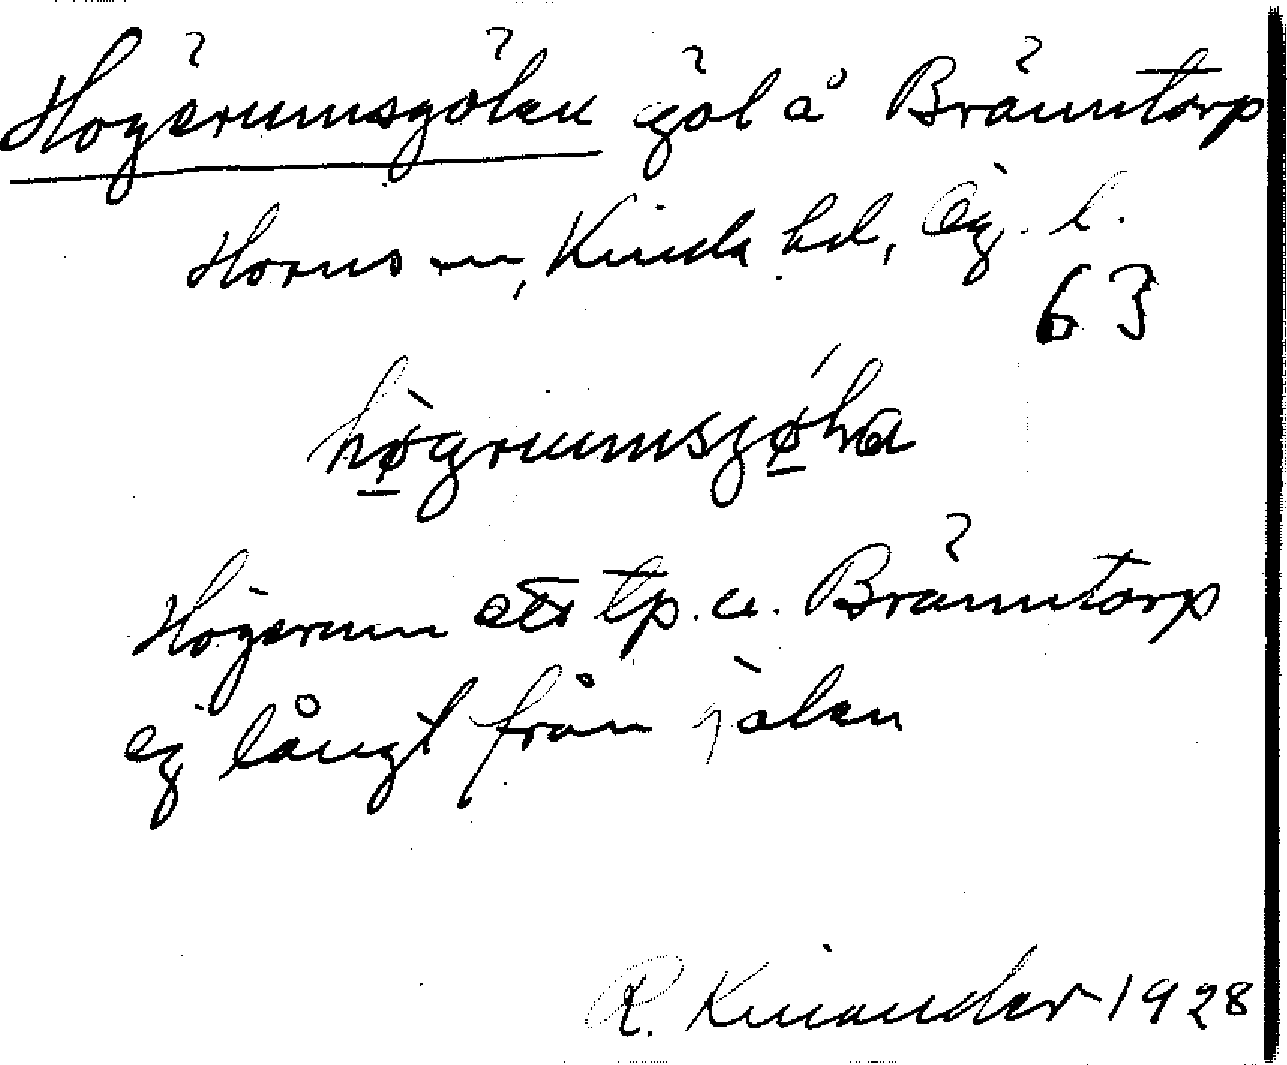 Högerumsgölen göl å Bränntorp
Horns sn, Kinda hd, Ög. l.
63
hø̀grumsgǿlɩa
Högerum ett tp. u. Bränntorp
ej långt från gölen
R. Kinander 1928